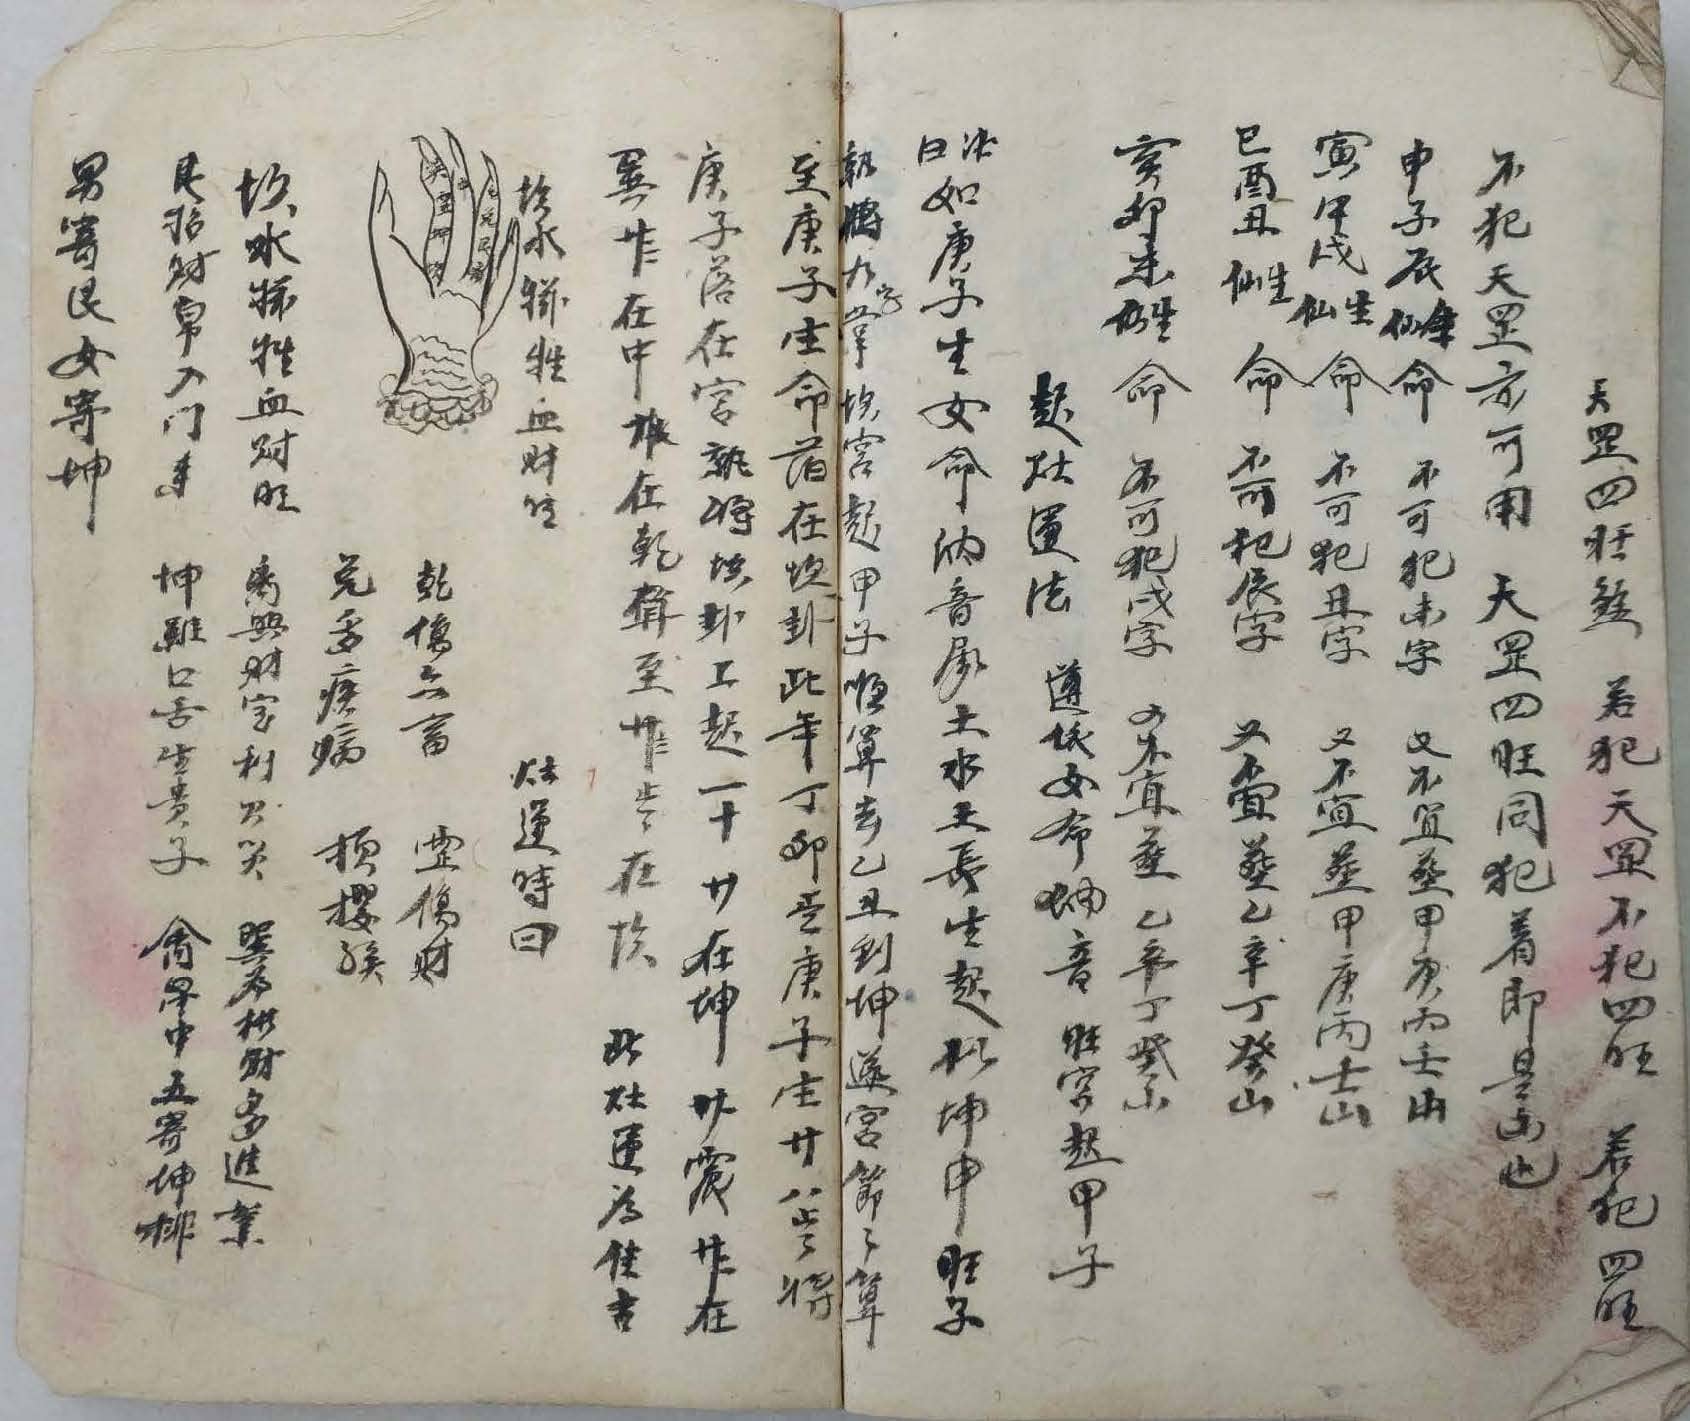 天罡四旺煞 若犯天罡不犯四旺 若犯四旺
不犯天罡亦可用 天罡四旺同犯着即是凶也
申子辰仙命 不可犯未字 又不宜葬甲庚丙壬山
寅午戌仙生命 不可犯丑字 又不宜葬甲庚丙壬山
巳酉丑仙生命 不可犯辰字 又不宜葬乙辛丁癸山
亥卯未仙生命 不可犯戌字 又不宜葬乙辛丁癸山
起灶運法 遵依女命納音旺宮起甲子
法曰如庚子生女命納音屬土水土長生起於坤申旺子
就將九字五掌坎宮起甲子順算去乙丑到坤逐宮節々算
至庚子生命落在坎卦此年丁卯是庚子生廿八歲將
庚子落在宮就將坎卦上起一十廿在坤卅震卌在
巽 在中 在乾 至 歲在坎 此灶運為佳吉
灶運時曰
坎水猪牲血財旺
乾傷六畜 傷財
兌多疾病 損
坎水猪牲血財旺 離興財宝利 巽為 財多進業
艮招財帛入门來 坤雖口舌生貴子 中五寄坤排
男寄艮女寄坤